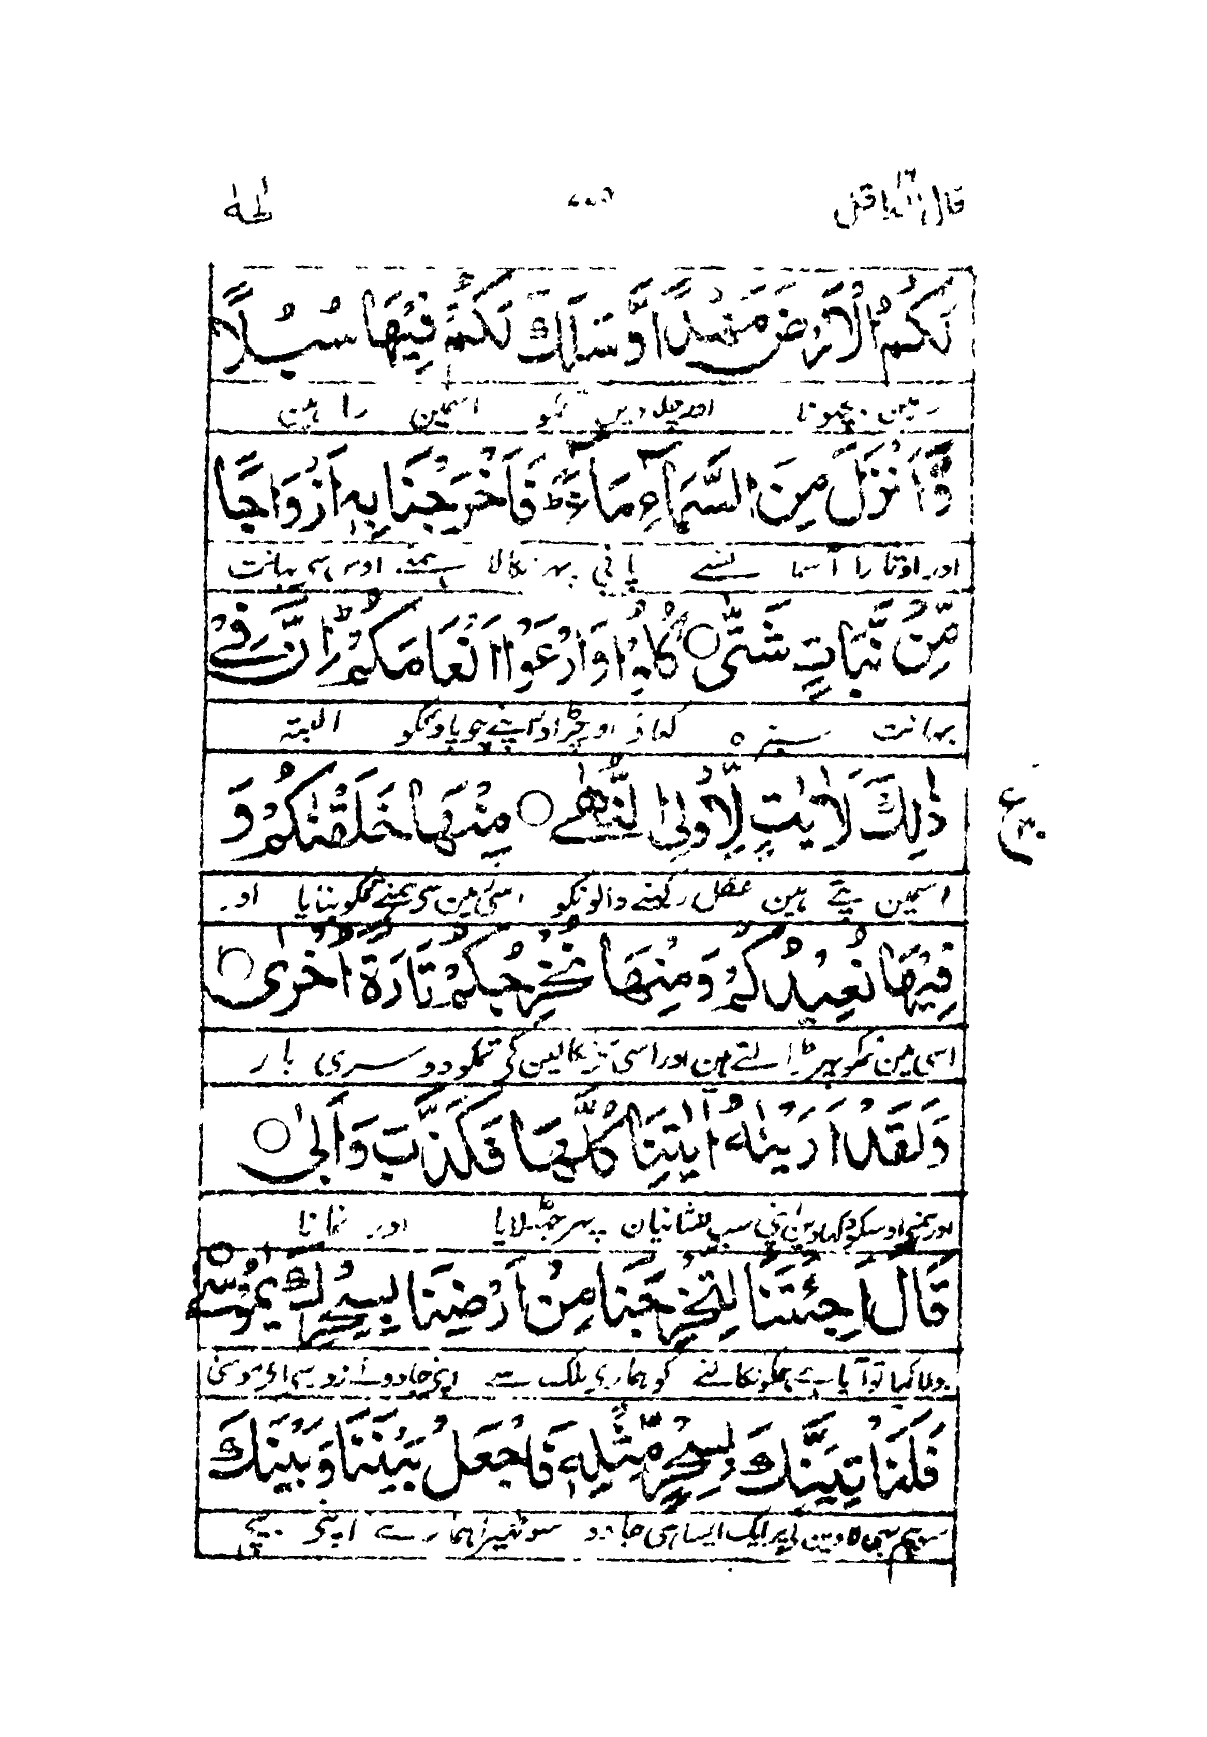 قال الم ١٦ طه
لَكُمُ الْاَرْضَ مَهْدًا وَّسَلَكَ لَكُمْ فِيْهَا سُبُلًا
زمین بچھونا اور چلا دیں تمکو اسمین راہین
وَّاَنْزَلَ مِنَ السَّمَآءِ مَآءً ؕ فَاَخْرَجْنَا بِهٖۤ اَزْوَاجًا
اور اوتارا آسما نسے پانی پہر نکالا ہمنے اوس سی بہانت
مِّنْ نَّبَاتٍ شَتّٰى ○ كُلُوْا وَارْعَوْا اَنْعَامَكُمْ ؕ اِنَّ فِيْ
بہانت سبزہ کہاؤ اور چراؤ اپنے چوپاونکو البتہ
ذٰلِكَ لَاٰيٰتٍ لِّاُولِى النُّهٰى ○ مِنْهَا خَلَقْنٰكُمْ وَ
اسمین پتے ہین عقل رکہنے والونکو اسی مین سی ہمنے تمکو بنایا اور
فِيْهَا نُعِيْدُكُمْ وَمِنْهَا نُخْرِجُكُمْ تَارَةً اُخْرٰى ○
اسی مین تمکو پہر ڈالتے ہین اور اسی نکالین گی تمکو دوسری بار
وَلَقَدْ اَرَيْنٰهُ اٰيٰتِنَا كُلَّهَا فَكَذَّبَ وَاَبٰى ○
اور ہمنے اوسکو دکہا دین اپنی سب نشانیان پہر جھٹلایا اور نمانا
قَالَ اَجِئْتَنَا لِتُخْرِجَنَا مِنْ اَرْضِنَا بِسِحْرِكَ يٰمُوْسٰى ○
بولا کیا تو آیا ہے ہمکو نکالنے کو ہماری ملک سے اپنی جادو کے زور سی ای موسی
فَلَنَاْتِيَنَّكَ بِسِحْرٍ مِّثْلِهٖ فَاجْعَلْ بَيْنَنَا وَبَيْنَكَ
سو ہم بہی لاوین گی ایک ایسا ہی جادو سو ٹھیرا ہمارے اپنی بیچ